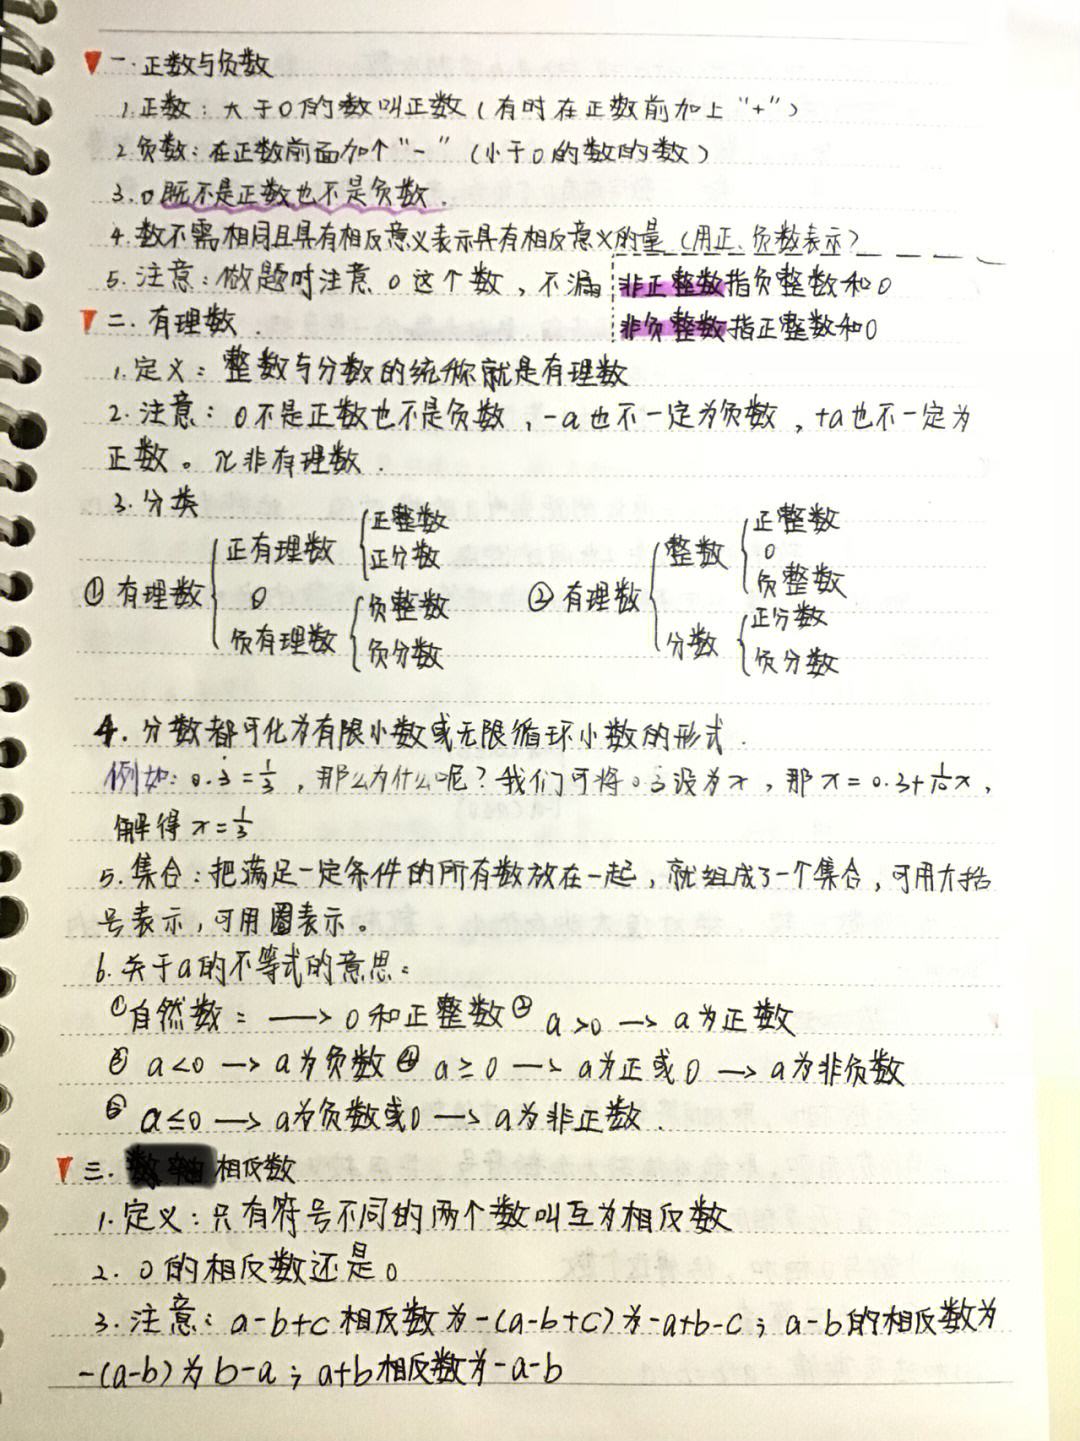 一.正数与负数
1.正数：大于0的数叫正数（有时在正数前加上"+"）
2.负数：在正数前面加个"-"（小于0的数的数）
3.0既不是正数也不是负数.
4.数不需相同且具有相反意义表示具有相反意义的量（用正、负数表示）
5.注意：做题时注意0这个数，不漏。非正整数指负整数和0
二.有理数.
非负整数指正整数和0
1.定义：整数与分数的统称就是有理数
2.注意：0不是正数也不是负数，-a也不一定为负数，+a也不一定为
正数。π非有理数.
3.分类
①有理数{正有理数{正整数 正分数
0
负有理数{负整数 负分数
②有理数{整数{正整数 0 负整数
分数{正分数 负分数
4.分数都可化为有限小数或无限循环小数的形式.
例如：0.3̇=1/3，那么为什么呢？我们可将0.3̇设为x，那x=0.3+1/10x，
解得x=1/3
5.集合：把满足一定条件的所有数放在一起，就组成了一个集合，可用大括
号表示，可用圈表示。
6.关于a的不等式的意思：
①自然数：⟶0和正整数② a>0⟶a为正数
③ a<0⟶a为负数④ a≥0⟶a为正或0⟶a为非负数
⑤ a≤0⟶a为负数或0⟶a为非正数.
三.相反数
1.定义：只有符号不同的两个数叫互为相反数
2.0的相反数还是0
3.注意：a-b+c相反数为-(a-b+c)为-a+b-c；a-b的相反数为
-(a-b)为b-a；a+b相反数为-a-b